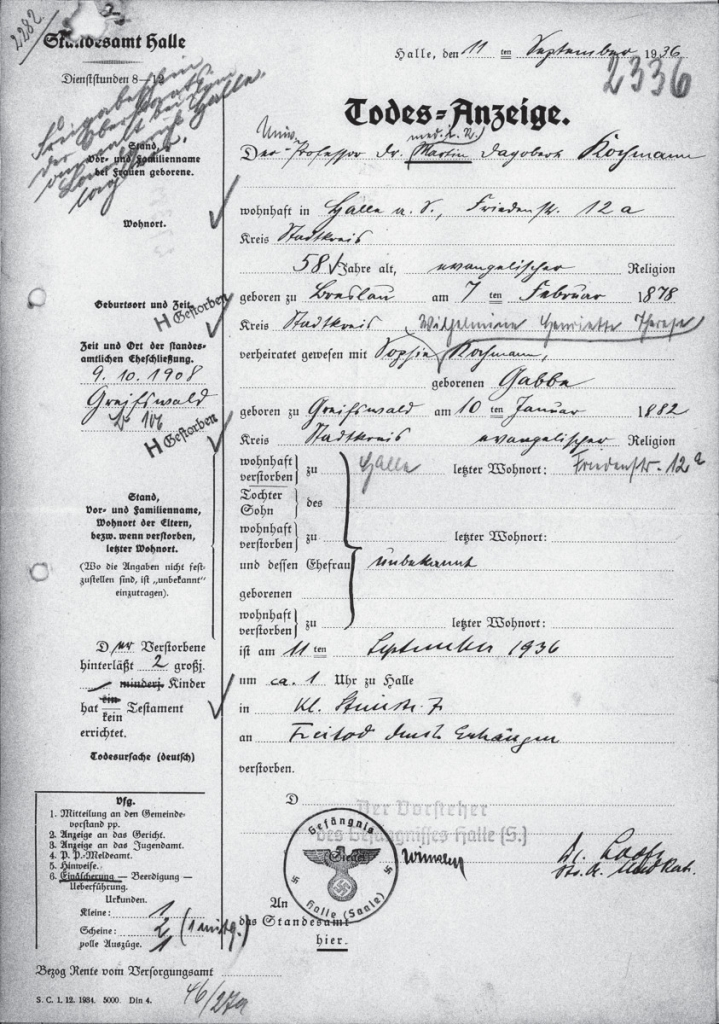 2282
Standesamt Halle
Dienststunden 8—12
Freigabeschein
der Oberstaats-
anwaltschaft Halle
Halle, den 11 ten September 1936
2336
Todes=Anzeige.
Univ. med. u. N.
Der Professor Dr. Martin Dagobert Kochmann
Stand,
Vor- und Familienname
bei Frauen geborene.
Wohnort.
wohnhaft in Halle a. S., Friedenstr. 12a
Kreis Stadtkreis
58 Jahre alt, evangelischer Religion
Geburtsort und Zeit.
H Gestorben
geboren zu Breslau am 7 ten Februar 1878
Kreis Stadtkreis (Wilhelmine Henriette Therese)
Zeit und Ort der standes-
amtlichen Eheschließung.
9. 10. 1908
Greifswald
Nr 106
H Gestorben
verheiratet gewesen mit Sophie Kochmann,
geborenen Gabbe
geboren zu Greifswald am 10 ten Januar 1882
Kreis Stadtkreis evangelischer Religion
wohnhaft
verstorben
zu Halle letzter Wohnort: Friedenstr. 12a
Stand,
Vor- und Familienname,
Wohnort der Eltern,
bezw. wenn verstorben,
letzter Wohnort.
(Wo die Angaben nicht fest-
zustellen sind, ist „unbekannt“
einzutragen).
Tochter
Sohn
des
wohnhaft
verstorben
zu letzter Wohnort:
und dessen Ehefrau unbekannt
geborenen
wohnhaft
verstorben
zu letzter Wohnort:
D er Verstorbene
hinterläßt 2 großj.
minderj. Kinder
hat ein
kein
Testament
errichtet.
Todesursache (deutsch)
ist am 11 ten September 1936
um ca. 1 Uhr zu Halle
in Kl. Steinstr. 7
an Freitod durch Erhängen
verstorben.
D
Der Vorsteher
des Gefängnisses Halle (S.)
Gefängnis
Siegel
Halle (Saale)
An
das Standesamt
hier.
Vfg.
1. Mitteilung an den Gemeinde-
vorstand pp.
2. Anzeige an das Gericht.
3. Anzeige an das Jugendamt.
4. P. P.-Meldeamt.
5. Hinweise.
6. Einäscherung — Beerdigung —
Ueberführung.
Urkunden.
Kleine: 1
Scheine: 2
volle Auszüge. 1
Bezog Rente vom Versorgungsamt
46/279
S. C. 1. 12. 1934. 5000. Din 4.